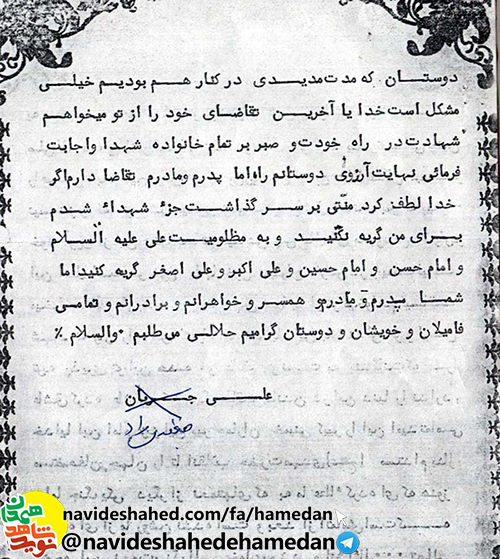 دوستان که مدت مدیدی در کنار هم بودیم خیلی
مشکل است خدا یا آخرین تقاضای خود را از تو میخواهم
شهادت در راه خودت و صبر بر تمام خانواده شهدا واجابت
فرمائی نهایت آرزوی دوستانم راه اما پدرم ومادرم تقاضا دارم اگر
خدا لطف کرد منتی بر سر گذاشت جزء شهداء شدم
برای من گریه نکنید و به مظلومیت علی علیه السلام
و امام حسن و امام حسین و علی اکبر و علی اصغر گریه کنید اما
شما پدرم و مادرم و همسر و خواهرانم و برادرانم و تمامی
فامیلان و خویشان و دوستان گرامیم حلالی می طلبم ۰ والسلام ٪
علی
navideshahed.com/fa/hamedan
@navideshahedehamedan
نوید شاهد همدان